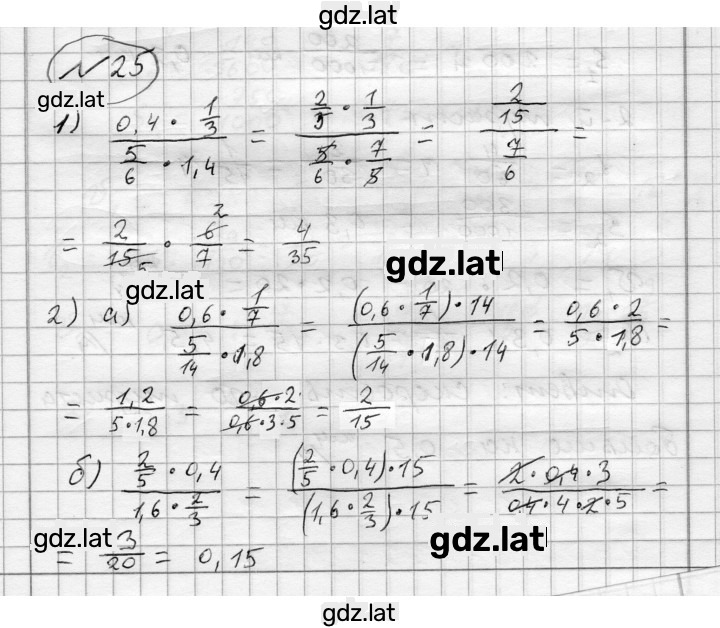 gdz.lat
№25
gdz.lat
1) (0,4 · 1/3) / (5/6 · 1,4) = (2/5 · 1/3) / (5/6 · 7/5) = (2/15) / (7/6) =
= 2/15 · 6/7 = 4/35
gdz.lat
gdz.lat
2) а) (0,6 · 1/7) / (5/14 · 1,8) = ((0,6 · 1/7) · 14) / ((5/14 · 1,8) · 14) = (0,6 · 2) / (5 · 1,8) =
= 1,2 / (5·1,8) = (0,6·2) / (0,6·3·5) = 2/15
б) (2/5 · 0,4) / (1,6 · 2/3) = ((2/5 · 0,4) · 15) / ((1,6 · 2/3) · 15) = (2 · 0,4 · 3) / (0,4 · 4 · 2 · 5) =
gdz.lat
gdz.lat
= 3/20 = 0,15
gdz.lat